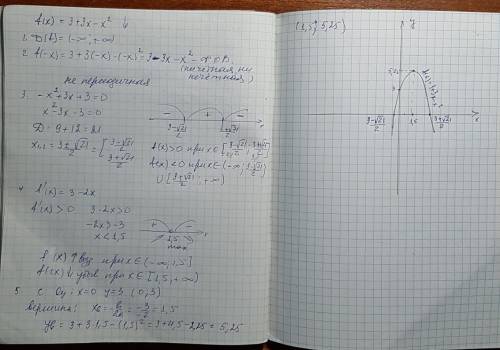 f(x) = 3 + 3x - x² ↓
1. D(f) = (-∞; +∞)
2. f(-x) = 3 + 3(-x) - (-x)² = 3 - 3x - x² -
(ни чётная, ни нечётная)
не периодичная
3. -x² + 3x + 3 = 0
x² - 3x - 3 = 0
D = 9 + 12 = 21
x₁,₂ = (3 ± √21)/2 = [ (3 - √21)/2 (3 + √21)/2
- + -
(3-√21)/2 (3+√21)/2 x
f(x) > 0 при x ∈ [(3-√21)/2; (3+√21)/2]
f(x) < 0 при x ∈ (-∞; (3-√21)/2)
∪ [(3+√21)/2; +∞)
4 f'(x) = 3 - 2x
f'(x) > 0 3 - 2x > 0
-2x > -3
x < 1,5
+ -
1,5 x
max
f(x) ↑ возр при x ∈ (-∞; 1,5]
f(x) ↓ убыв при x ∈ [1,5; +∞)
5 с Oy: x = 0 y = 3 (0; 3)
вершина: x₀ = -b/2a = -3/-2 = 1,5
y₀ = 3 + 3·1,5 - (1,5)² = 3 + 4,5 - 2,25 = 5,25
(1,5; 5,25)
y
5,25
3
f(x) = 3+3x-x²
(3-√21)/2 1,5 (3+√21)/2 x